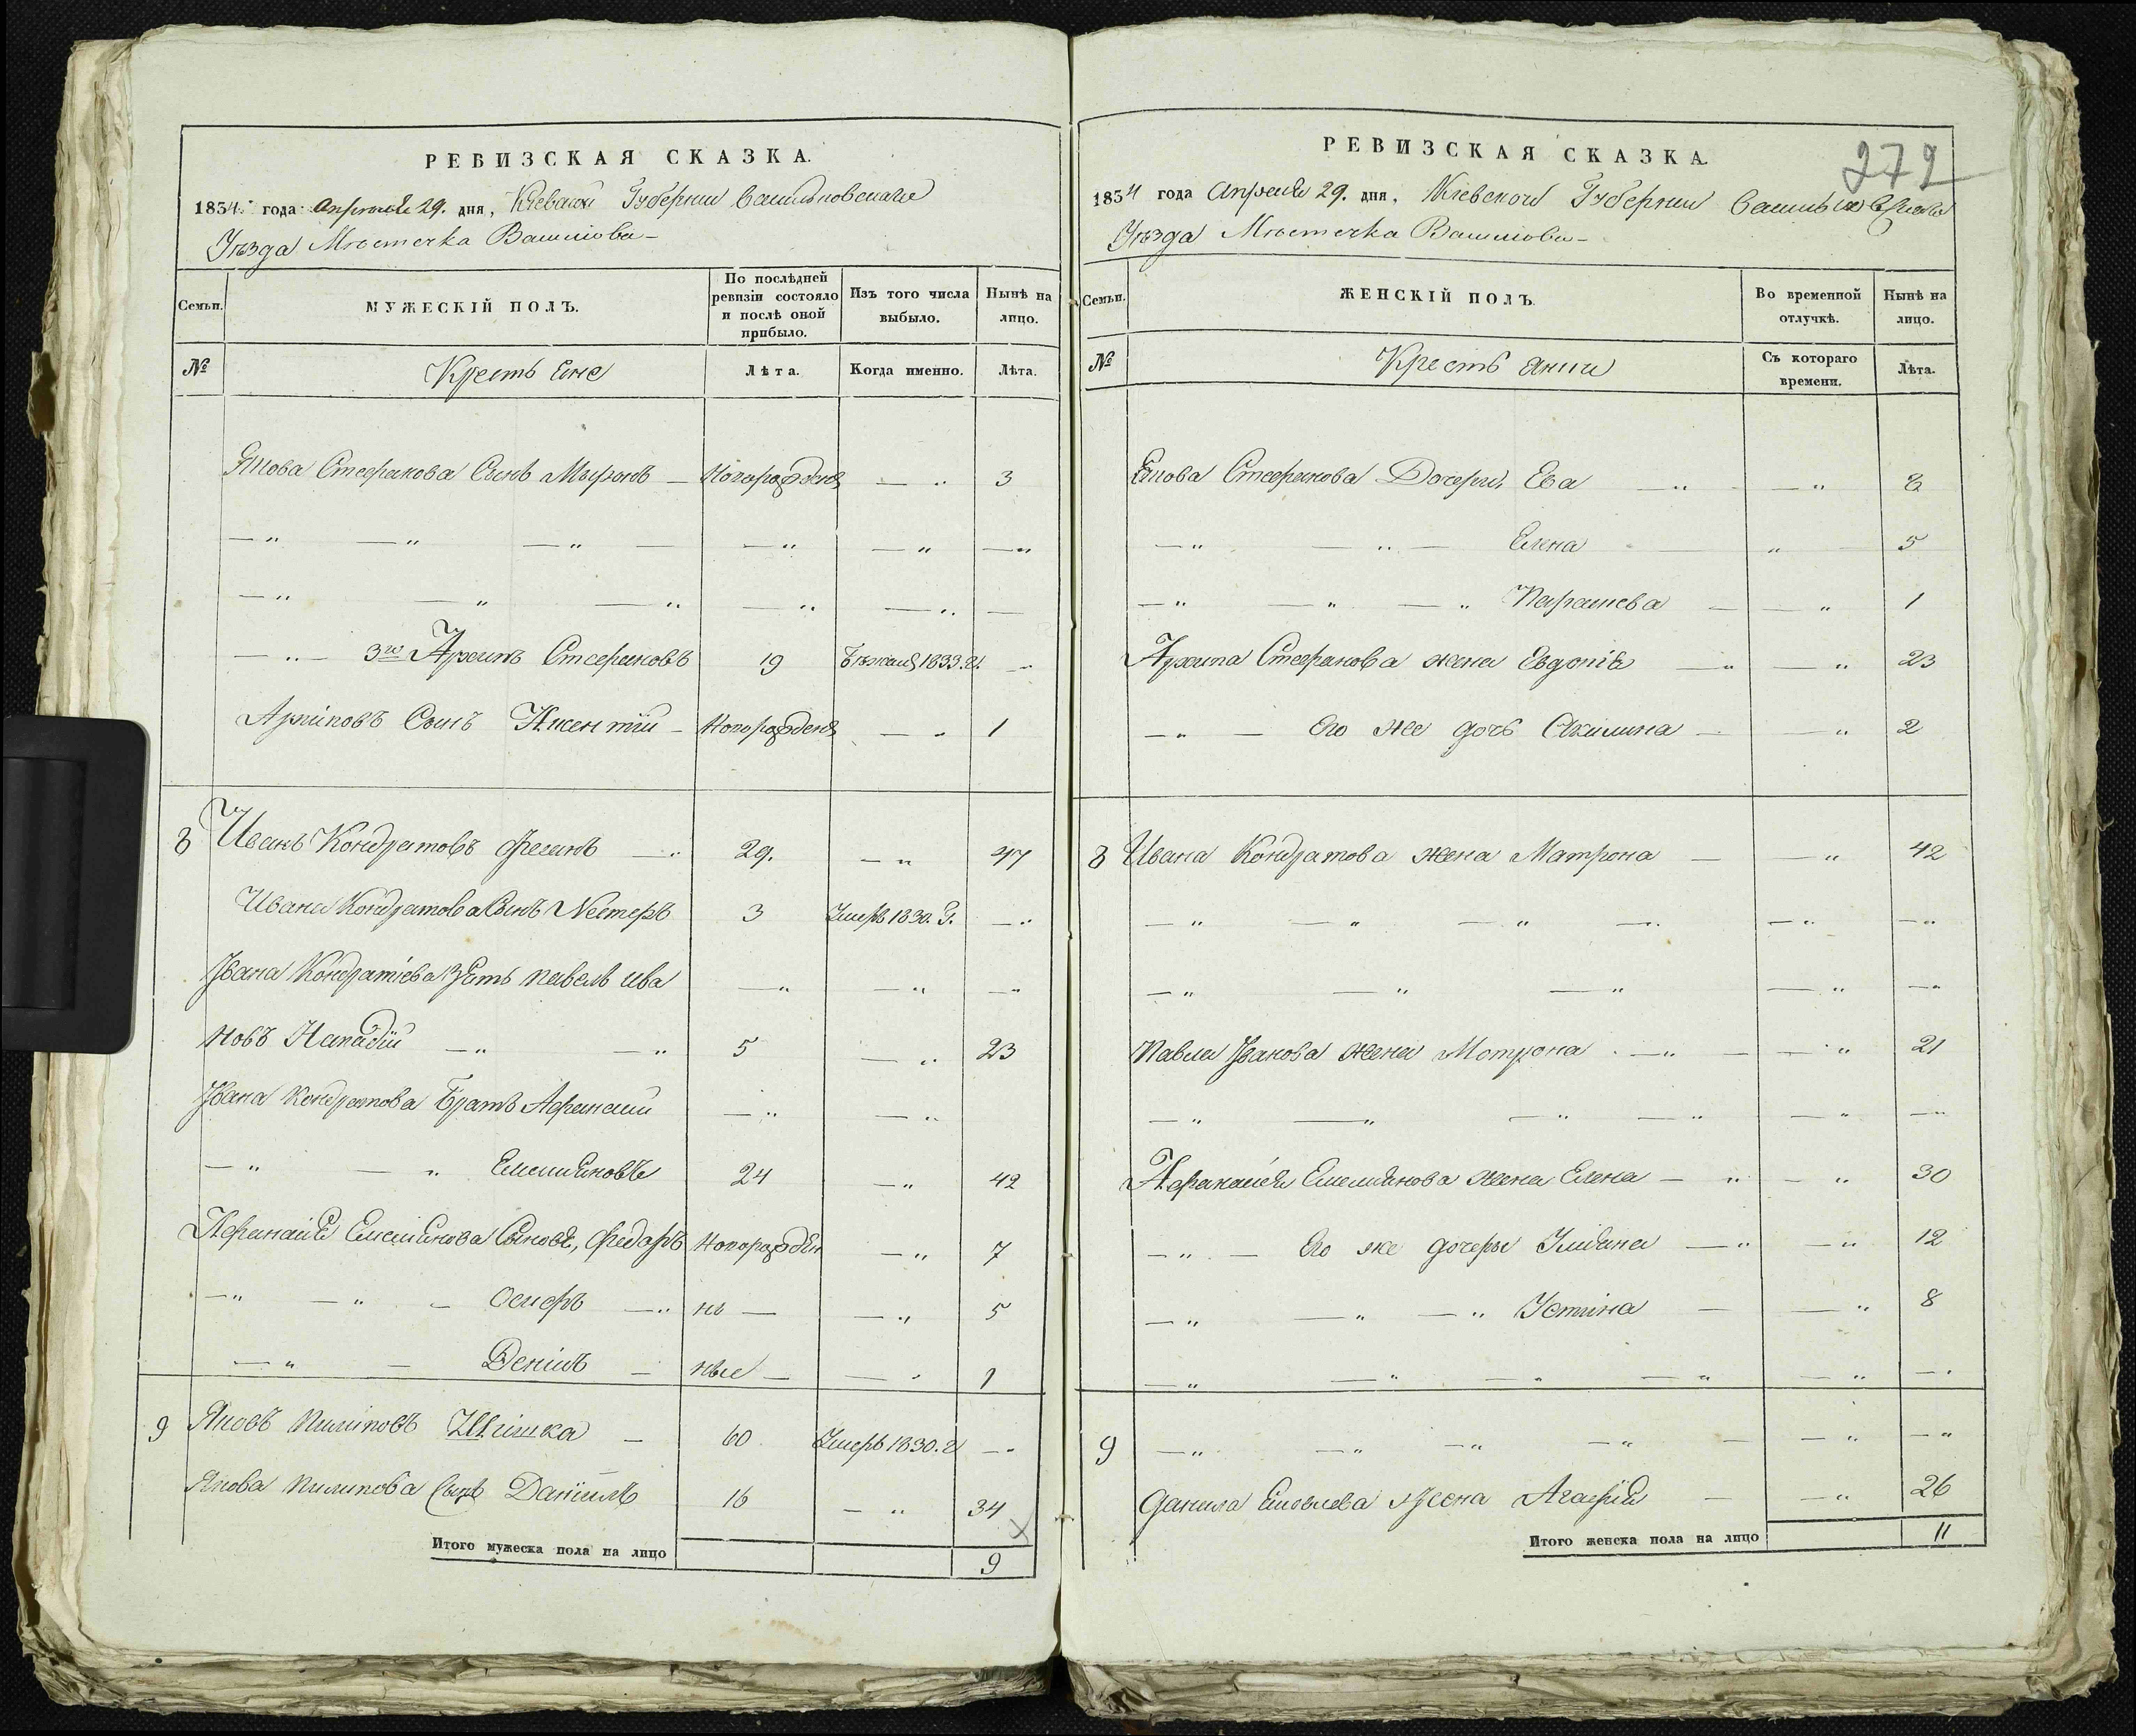 РЕВИЗСКАЯ СКАЗКА.
1834 года Апреля 29. дня, Киевской Губернии Васильковскаго
Уезда Местечка Вашилова
Семьи. МУЖЕСКІЙ ПОЛЪ. По послѣдней ревизіи состояло и послѣ оной прибыло. Изъ того числа выбыло. Нынѣ на лицо.
№ Крестьяне Лѣта. Когда именно. Лѣта.
Якова Стефанова Сынъ Миронъ — Новорожденъ — " 3
— " — " — " — — " — " — "
— " — " — " — " — " —
— " — 3й Архипъ Стефановъ 19 Бежалъ 1833. г. — "
Архиповъ Сынъ — Новорожденъ — " 1
8 Иванъ Кондратовъ — " 29. — " 47
Ивана Кондратова Сынъ Нестеръ 3 Умеръ 1830. г. — "
Ивана Кондратіева Зять Павелъ Ива — " — " — "
новъ — " — " 5 — " 23
Ивана Кондратова Братъ Афанасій — " — "
— " — " Емельяновъ 24 — " 42
Афанасія Емельянова Сыновья, Федоръ Новорожден — " 7
— " — " — — " ны — — " 5
— " — — ные — — " 1
9 Яковъ Пилиповъ Шишка — 60 Умеръ 1830. г. — "
Якова Пилипова Сынъ Даніилъ 16 — " 34
Итого мужеска пола на лицо 9
РЕВИЗСКАЯ СКАЗКА.
272
1834 года Апреля 29. дня, Киевской Губернии
Уезда Местечка Вашилова
Семьи. ЖЕНСКІЙ ПОЛЪ. Во временной отлучкѣ. Нынѣ на лицо.
№ Крестьянки Съ котораго времени. Лѣта.
Якова Стефанова Дочери, Ева — " — " 8
— " — " — Елена — " — 5
— " — " — " Параскева — — " 1
Архипа Стефанова жена Евдокія — " — " 23
— " — Его же дочь Акилина — — " 2
8 Ивана Кондратова жена Матрона — — " 42
— " — " — " — " — " — "
— " — " — " — " — "
Павла Иванова жена Мотрона — " — — " 21
— " — " — " — " — " — "
Афанасія Емельянова жена Елена — " — " 30
— " — Его же дочеры Уліана — " — " 12
— " — " — " Устина — — " 8
— " — " — " — " — " — "
9 — " — " — " — " — — " — "
Данила Яковлева жена Агафія — — " 26
Итого женска пола на лицо 11